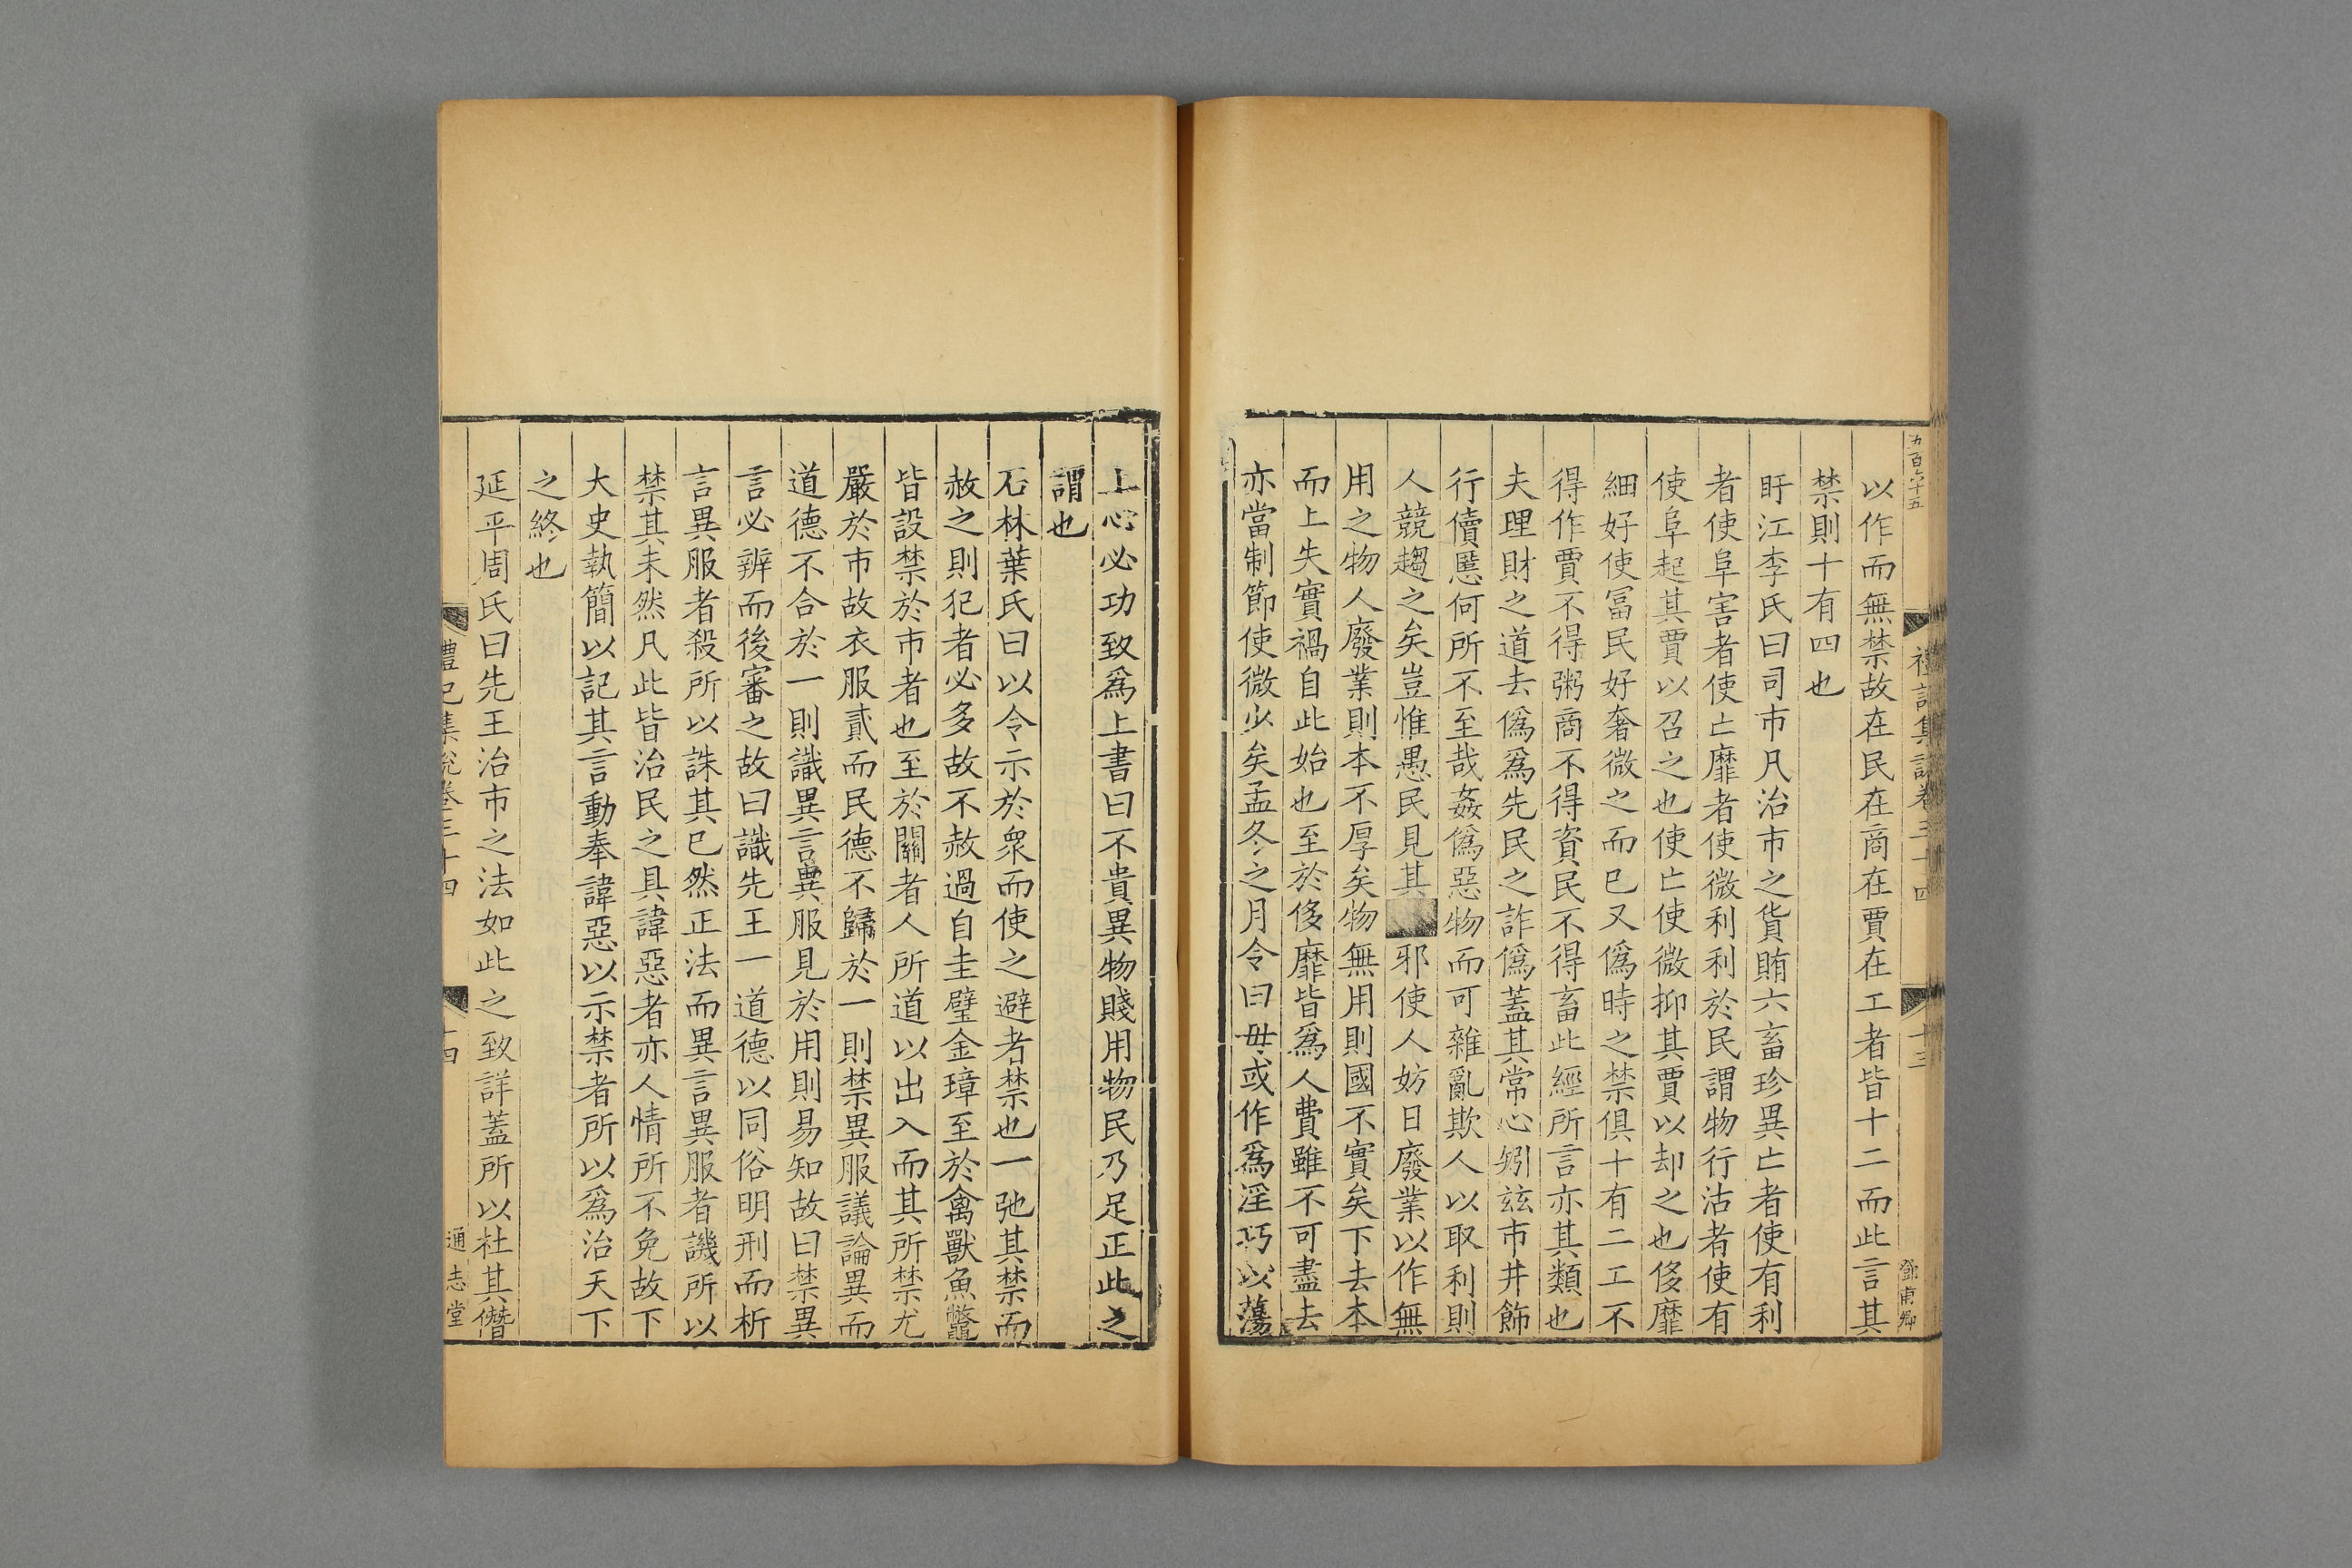 五百六十五
禮記集說卷三十四
十三
鄧東卿
以作而無禁故在民在商在賈在工者皆十二而此言其
禁則十有四也
盱江李氏曰司市凡治市之貨賄六畜珍異亡者使有利
者使阜害者使亡靡者使微利利於民謂物行沽者使有
使阜起其賈以召之也使亡使微抑其賈以却之也侈靡
細好使冨民好奢微之而已又僞時之禁俱十有二工不
得作賈不得粥商不得資民不得畜此經所言亦其類也
夫理財之道去僞爲先民之詐僞蓋其常心矧兹市井飾
行儥慝何所不至哉姦僞惡物而可雜亂欺人以取利則
人競趨之矣豈惟愚民見其邪使人妨日廢業以作無
用之物人廢業則本不厚矣物無用則國不實矣下去本
而上失實禍自此始也至於侈靡皆爲人費雖不可盡去
亦當制節使微少矣孟冬之月令曰毋或作爲淫巧以蕩
上心必功致爲上書曰不貴異物賤用物民乃足正此之
謂也
石林葉氏曰以令示於衆而使之避者禁也一弛其禁而
赦之則犯者必多故不赦過自圭璧金璋至於禽獸魚鼈
皆設禁於市者也至於關者人所道以出入而其所禁尤
嚴於市故衣服貳而民德不歸於一則禁異服議論異而
道德不合於一則識異言異服見於用則易知故曰禁異
言必辨而後審之故曰識先王一道德以同俗明刑而析
言異服者殺所以誅其已然正法而異言異服者譏所以
禁其未然凡此皆治民之具諱惡者亦人情所不免故下
大史執簡以記其言動奉諱惡以示禁者所以爲治天下
之終也
延平周氏曰先王治市之法如此之致詳蓋所以杜其僭
禮記集說卷三十四
十四
通志堂